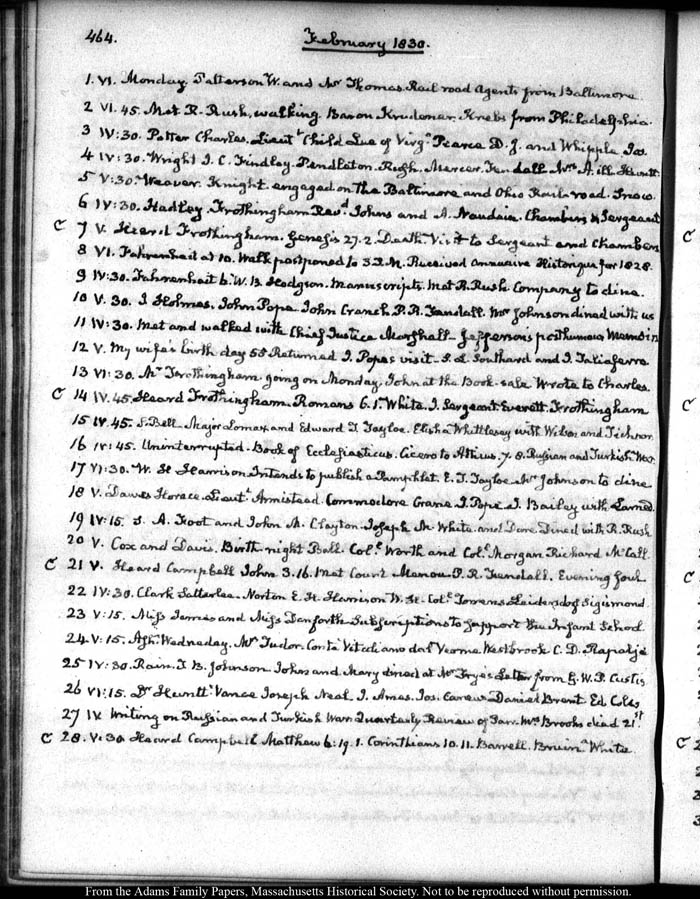 464.
February 1830.
1. VI. Monday. Patterson W. and Mr Thomas. Rail road agents from Baltimore.
2 VI. 45. Met R. Rush, walking. Baron Krudener. Krebs from Philadelphia.
3 IV: 30. Potter Charles. Lieutt Child Lee of Virga Pearce D. J. and Whipple Jos.
4 IV: 30. Wright J. C. Findley. Pendleton. Rush. Mercer. Kendall. Mrs A. ill. Huntt.
5 V: 30. Weaver. Knight engaged on the Baltimore and Ohio Rail-road. Snow.
6 IV: 30. Hadley. Frothingham Revd. Johns and A. Naudain. Chambers & Sergeant
C 7 V. Heard Frothingham. Genesis 27. 2. Death. Visit to Sergeant and Chambers
8 VI. Fahrenheit at 10. Walk postponed to 3. P.M. Received Annuaire Historique for 1828.
9 IV: 30. Fahrenheit 6. W. B. Hodgson. Manuscripts. Met R. Rush. Company to dine.
10 V. 30. J Holmes. John Pope. John Cranch. P. R. Fendall. Mr Johnson dined with us
11 IV: 30. Met and walked with Chief Justice Marshall. Jefferson's posthumous Memoirs
12 V. My wife's birth day 55 Returned J. Pope's visit. S. L. Southard and J. Taliaferro
13 VI: 30. Mr Frothingham. going on Monday. John at the Book-sale. Wrote to Charles.
C 14 IV. 45. Heard Frothingham. Romans 6. 1. White. J. Sergeant. Everett. Frothingham
15 IV. 45. S. Bell. Major Lomax and Edward T. Tayloe. Elisha Whittlesey with and
16 IV: 45. Uninterrupted. Book of Ecclesiasticus. Cicero to Atticus. 7. 8. Russian and Turkish War
17 VI: 30. W. H. Harrison. Intends to publish a Pamphlet. E. T. Tayloe. Mr Johnson to dine
18 V. Dawes Horace. Lieutt Armistead. Commodore Crane. J. Pope. J. Bailey with
19 IV: 15. S. A. Foot and John M. Clayton. Joseph M. White and Dined with R. Rush
20 V. Cox and Davis. Birth-night Ball. Coll. Worth and Coll. Morgan. Richard McCall.
C 21 V. Heard Campbell John 3. 16. Met Count Menou. P. R. Fendall. Evening foul
22 IV: 30. Clark Satterlee. Norton E. H. Harrison W. H. Coll. Torrens Leidersdorf Sigismond
23 V: 15. Miss James and Miss Danforth. Subscriptions to support the Infant School.
24 V: 15. Ash Wednesday. Mr Tudor. Conta Vitaliano dal Verme. Westbrook C. D. Rapalje
25 IV: 30. Rain. T. B. Johnson. John and Mary dined at Mr Frye's. Letter from G. W. P. Custis
26 VI: 15. Dr Huntt. Vance Joseph. Neal J. Ames. Jos. Carew. Daniel Brent. Ed. Coles
27 IV Writing on Russian and Turkish War. Quarterly Review of Jan. Mrs Brooks died 21st
C 28. V: 30 Heard Campbell Matthew 6: 19. 1. Corinthians 10. 11. Barrell. White
From the Adams Family Papers, Massachusetts Historical Society. Not to be reproduced without permission.